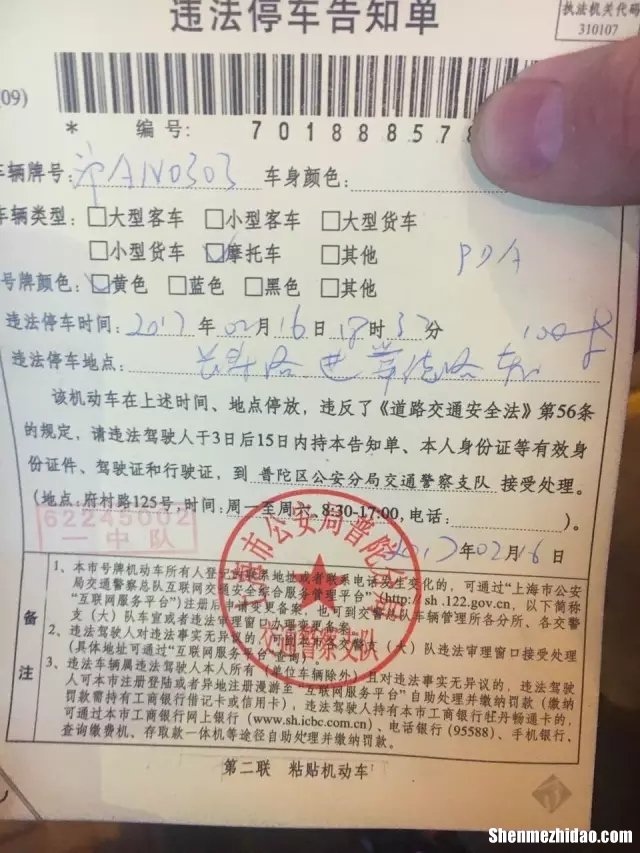 违法停车告知单
执法机关代码
310107
09)
* 编号: 701888578
车辆牌号: 沪AN0303 车身颜色:
车辆类型: □大型客车 □小型客车 □大型货车
□小型货车 ☑摩托车 □其他 PDA
号牌颜色: ☑黄色 □蓝色 □黑色 □其他
违法停车时间: 2017年02月16日18时37分
违法停车地点: 长寿路
该机动车在上述时间、地点停放，违反了《道路交通安全法》第56条
的规定，请违法驾驶人于3日后15日内持本告知单、本人身份证等有效
身份证件、驾驶证和行驶证，到 普陀区公安分局交通警察支队 接受处理。
(地点:府村路125号,时间:周一至周六、8:30-17:00,电话: )。
62245002
一中队
2017年02月16日
备注
1、本市号牌机动车所有人登记的联系地址或者联系电话发生变化的，可通过“上海市公安
局交通警察总队互联网交通安全综合服务管理平台”(http://sh.122.gov.cn，以下简称
“互联网服务平台”)注册后申请变更备案，也可到交警总队车辆管理所各分所、各交警
支（大）队车宣或者违法审理窗口办理变更备案。
2、违法驾驶人对违法事实无异议的，可到本市各交警支（大）队违法审理窗口接受处理
(具体地址可通过“互联网服务平台”查询)。
3、违法车辆属违法驾驶人本人所有（单位车辆除外）且对违法事实无异议的，违法驾驶
人可本市注册登陆或者异地注册漫游至“互联网服务平台”自助处理并缴纳罚款（缴纳
罚款需持有工商银行借记卡或信用卡），违法驾驶人持有本市工商银行牡丹畅通卡的，
可通过本市工商银行网上银行(www.sh.icbc.com.cn)、电话银行(95588)、手机银行、
查询缴费机、存取款一体机等途径自助处理并缴纳罚款。
市公安局普陀分局
交通警察支队
第二联 粘贴机动车
Shenmezhidao.com